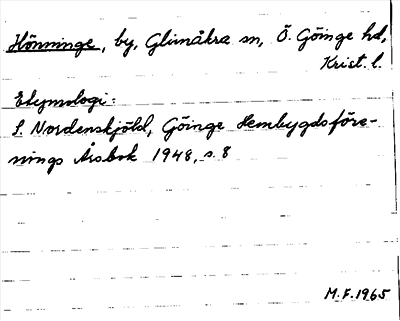 Hönninge, by, Glimåkra sn, Ö. Göinge hd,
Krist. l.
Etymologi:
S. Nordenskjöld, Göinge Hembygdsföre-
nings Årsbok 1948, s. 8
M.F. 1965